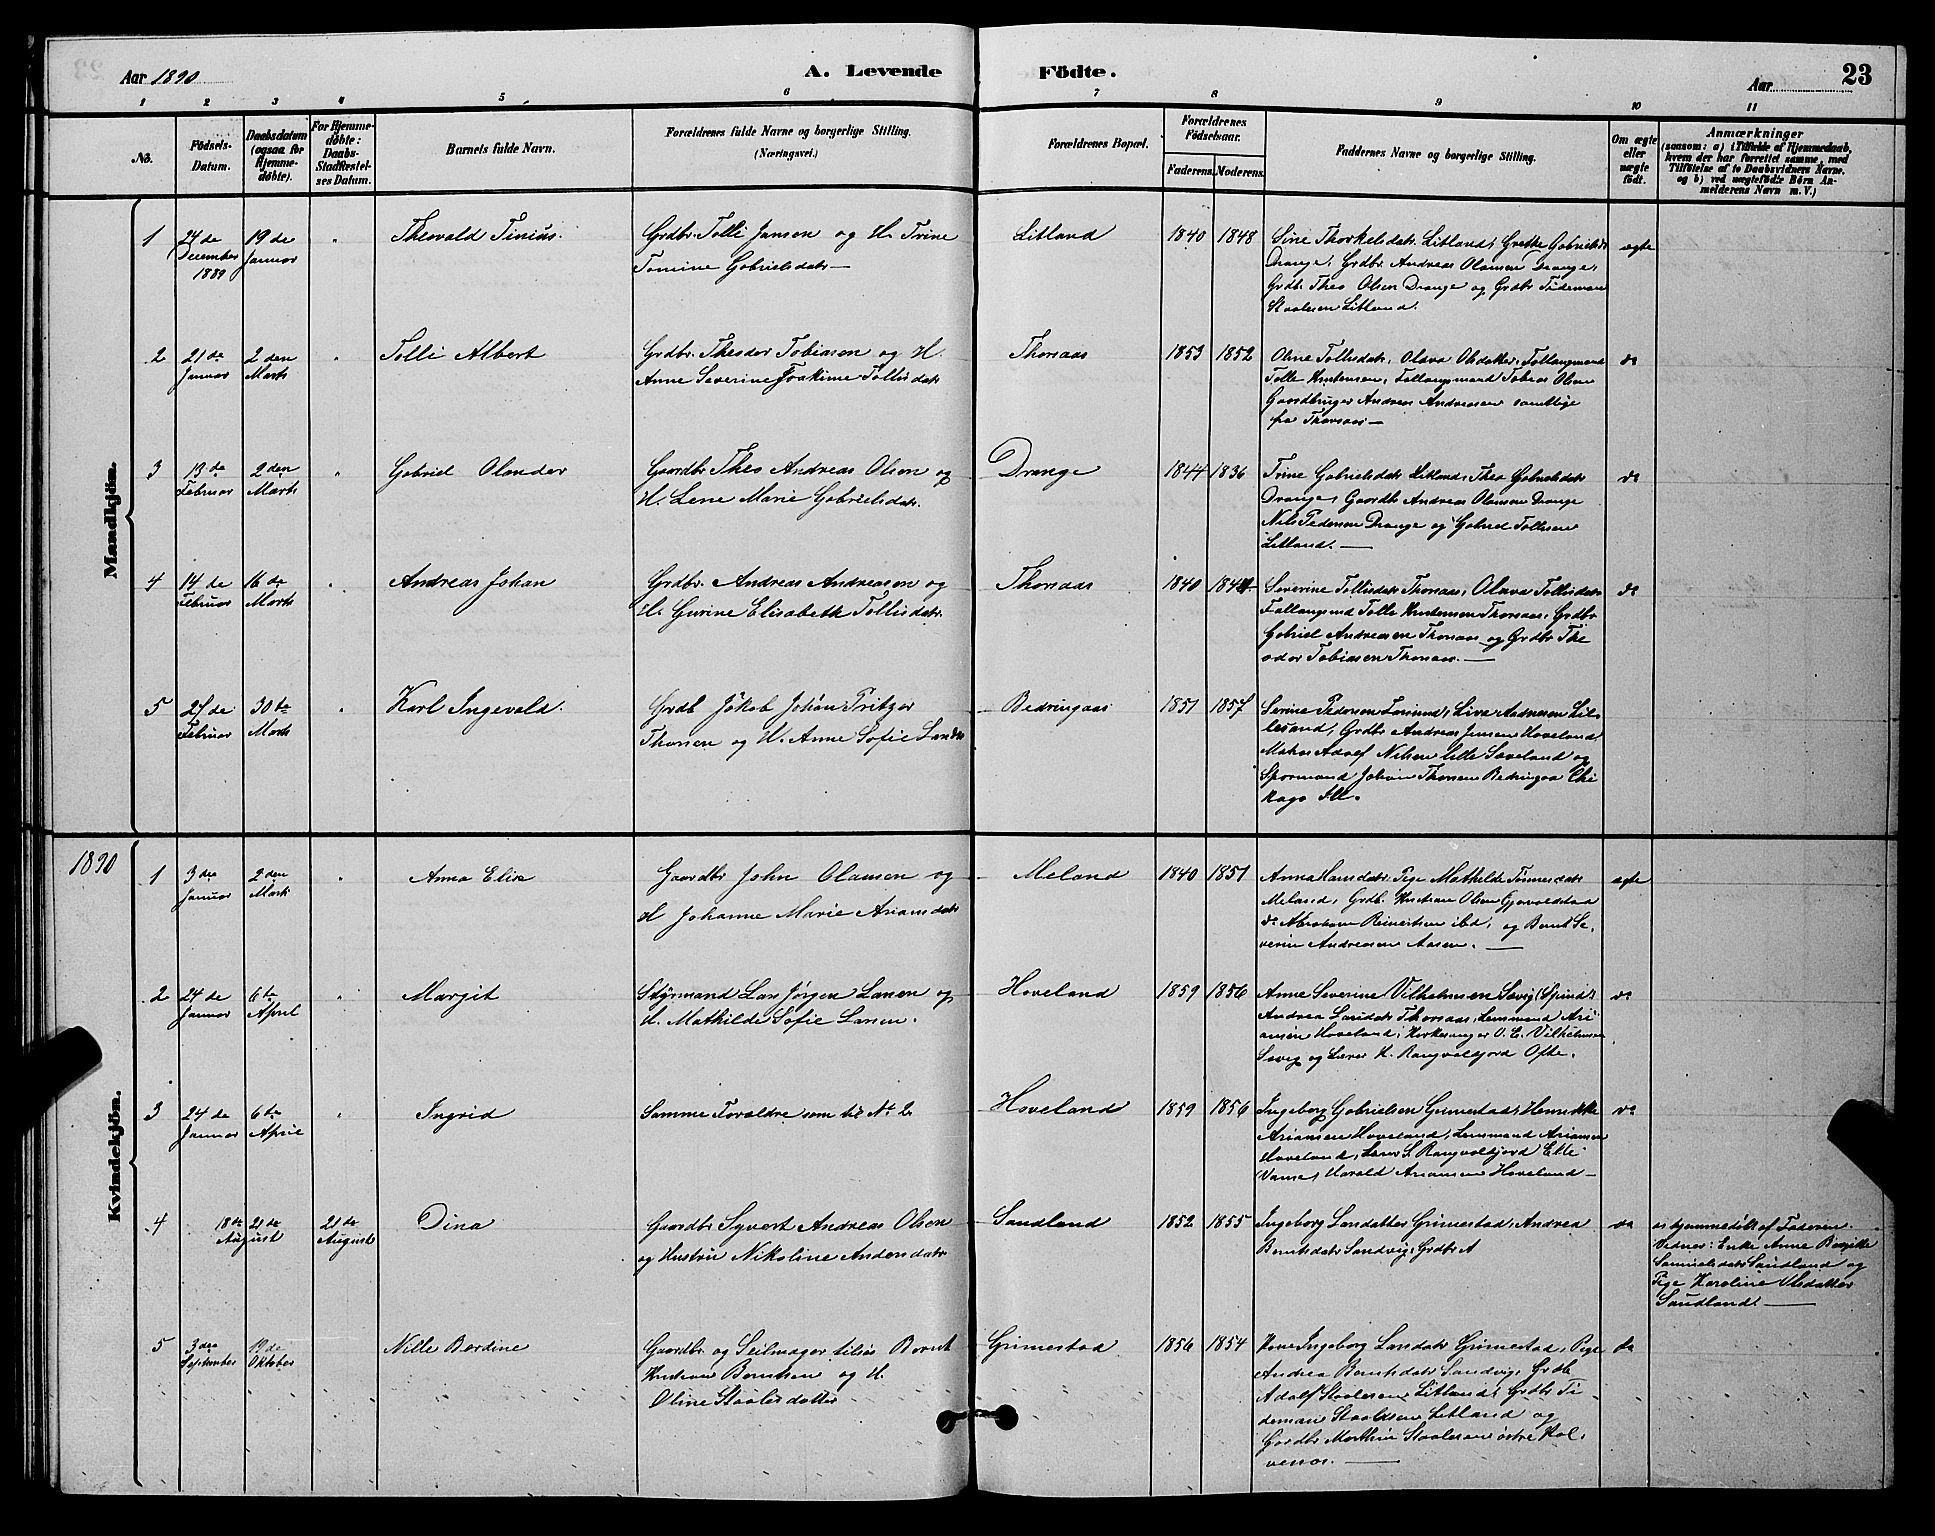 Aar 1890
A. Levende
Födte.
Aar
23
1 2 3 4 5 6 7 8 9 10 11
No.
Födsels-
Datum.
Daabsdatum
(ogsaa for
Hjemme-
døbte).
For Hjemme-
døbte:
Daabs-
Stadfæstel-
ses Datum.
Barnets fulde Navn.
Forældrenes fulde Navne og borgerlige Stilling.
(Næringsvei.)
Forældrenes Bopæl.
Forældrenes
Födselsaar.
Faderens. Moderens.
Faddernes Navne og borgerlige Stilling.
Om ægte
eller
uægte
født.
Anmærkninger
(saasom: a) i Tilfælde af Hjemmedaab,
hvem der har forrettet samme, med
Tilføielse af to Daabsvidners Navne.
og b) ved uægtefødte Børn An-
melderens Navn m. V.)
Mandkjön.
1
24de
December
1889
19de
Januar
"
Theovald Tinius.
Grdbr. Tolli Jansen og H. Trine
Tomine Gabrielsdatr
Litland
1840 1848
Sine Thorkelsdatr Litland, Grethe Gabrielsdr
Drange, Grdbr Andreas Olausen Drange,
Grdbr Theo Olsen Drange og Grdbr Tideman
Staalesen Litland.
ægte
2
21de
Januar
2den
Marts
"
Tolli Albert
Grdbr. Theodor Tobiasen og H.
Anne Severine Joakime Tollisdatr
Thorsaas
1853 1852
Oline Tollisdatr, Olava Olsdatter, Follaugsmand
Tolle Kristensen, Follaugsmand Tobias Olsen
Gaardbruger Andreas Andreasen samtlige
fra Thorsaas
do
3
13de
Februar
2den
Marts
"
Gabriel Olander
Gaardbr Theo Andreas Olsen og
H. Lene Marie Gabrielsdatr.
Drange
1844 1836
Trine Gabrielsdatr Litland, Thea Gabrielsdatr
Drange, Gaardbr Andreas Olausen Drange
Nils Pedersen Drange og Gabriel Tollisen
Litland.
do
4
14de
Februar
16de
Marts
"
Andreas Johan
Grdbr. Andreas Andreasen og
H. Gurine Elisabeth Tollisdatr.
Thorsaas
1840 1844
Severine Tollisdatr Thorsaas, Olava Tollisdatr
Follaugsmd Tolle Kristensen Thorsaas, Grdbr
Gabriel Andreasen Thorsaas og Grdbr The
odor Tobiasen Thorsaas.
do
5
27de
Februar
30te
Marts
"
Karl Ingevald.
Grdb Jakob Johan Fritzor
Thorsen og H. Anne Sofie
Bedringaas
1851 1857
Serine Pedersen Live Andresen Lil-
lesand, Grdbr Andreas Jensen Hoveland,
Adolf Nilsen lille Saveland og
Johan Thorsen Bedringaa Chi
kago Ill.
1890
Kvindekjön.
1
3die
Januar
2den
Mark
"
Anna Elise
Gaardbr John Olausen og
H Johanne Marie Ariansdatr
Meland
1840 1851
Anna Hansdatr, Pige Mathilde Tønnesdatr
Meland, Grdb. Kristian Olsen
do Abraham Reinertsen ibd, og Bernt Se-
verin Andreasen Aasen.
ægte
2
24de
Januar
6te
April
"
Margit
Styrmand Lars Jørgen Larsen og
H. Mathilde Sofie Larsen.
Hoveland
1859 1856
Anne Severine Vilhelmsen Savig (Spind)
Andrea Larsdatr Thorsaas, Lensmand Ari
ansen Hoveland, Kirkesanger O. E. Vilhelmsen
Savig og Lærer H. Rangvaldjord Ofte.
do
3
24de
Januar
6te
April
"
Ingrid
Samme Foreldre som til No 2
Hoveland
1859 1856
Ingeborg Gabrielsen Grimestad, Henrikke
Ariansen Hoveland, Lensmand Ariansen
Hoveland, Lærer S. Rangvaldjord
Vanse, Harald Ariansen Hoveland
do
4
18de
August
21de
August
21de
August
Dina
Gaardbr Syvert Andreas Olsen
og Hustru Nikoline Andersdatr
Sandland
1852 1855
Ingeborg Larsdatter Grimestad, Andrea
Berntsdatr Sandvig, Grdbr A
do
a, hjemmedøbt af Faderen.
Vidner: Enke Anne Birgitte
Samuelsdatr Sandland og
Pige Karoline Olsdatter
Sandland.
5
3die
September
19de
Oktober
Nille Berdine
Gaardbr og Seilmager Bernt
Kristian Berntsen og H.
Oline Staalesdatter
Grimestad
1856 1854
Kone Ingeborg Larsdatr Grimestad, Pige
Andrea Berntsdatr Sandvig, Grdb
Adolf Staalesen Litland, Grdbr Ti-
deman Staalesen Litland og
Gardbr Marthin Staalesen østre
do